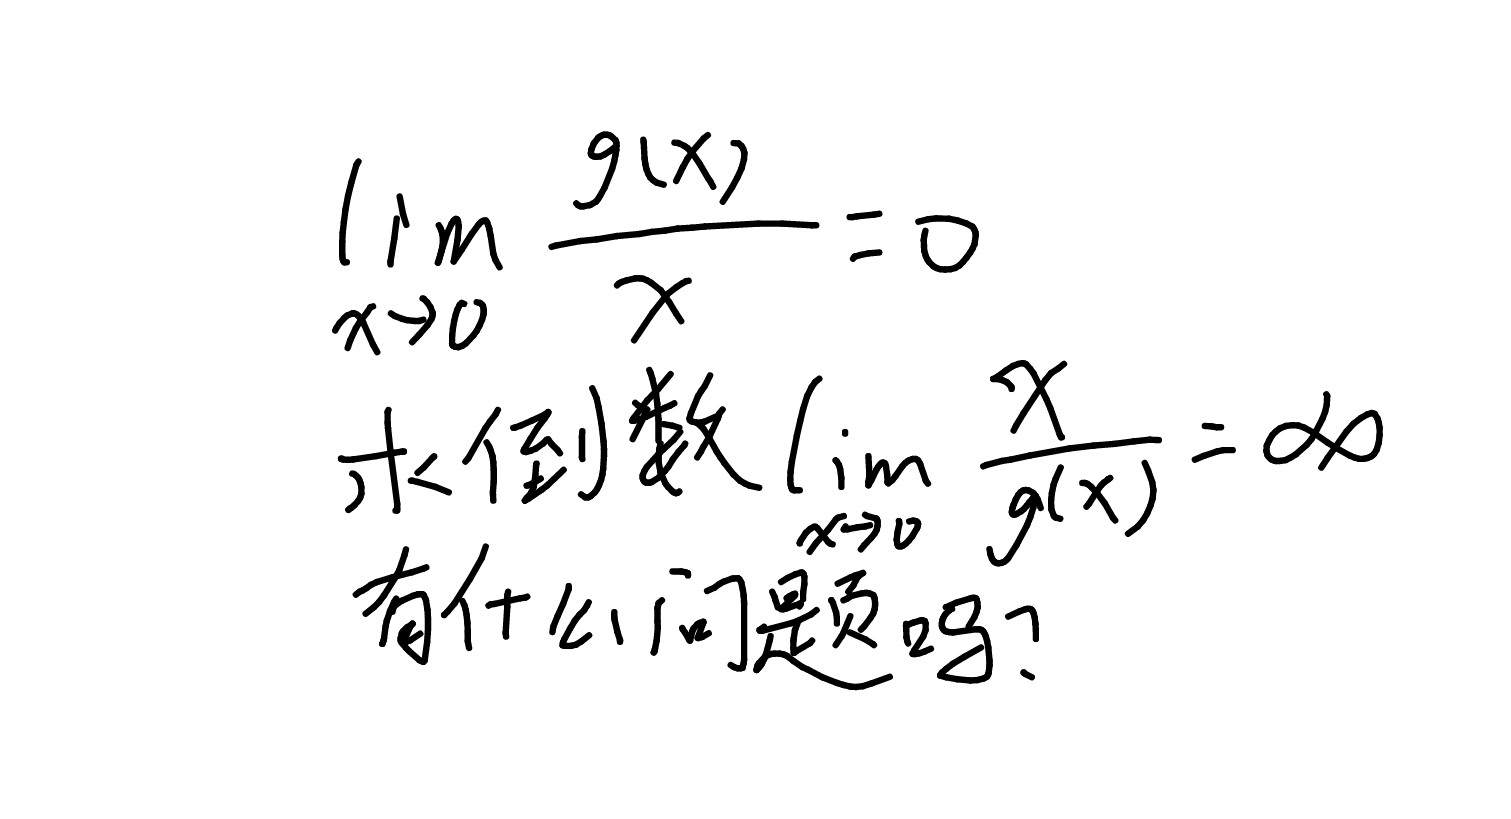 lim x→0 g(x)/x = 0
求倒数 lim x→0 x/g(x) = ∞
有什么问题吗?